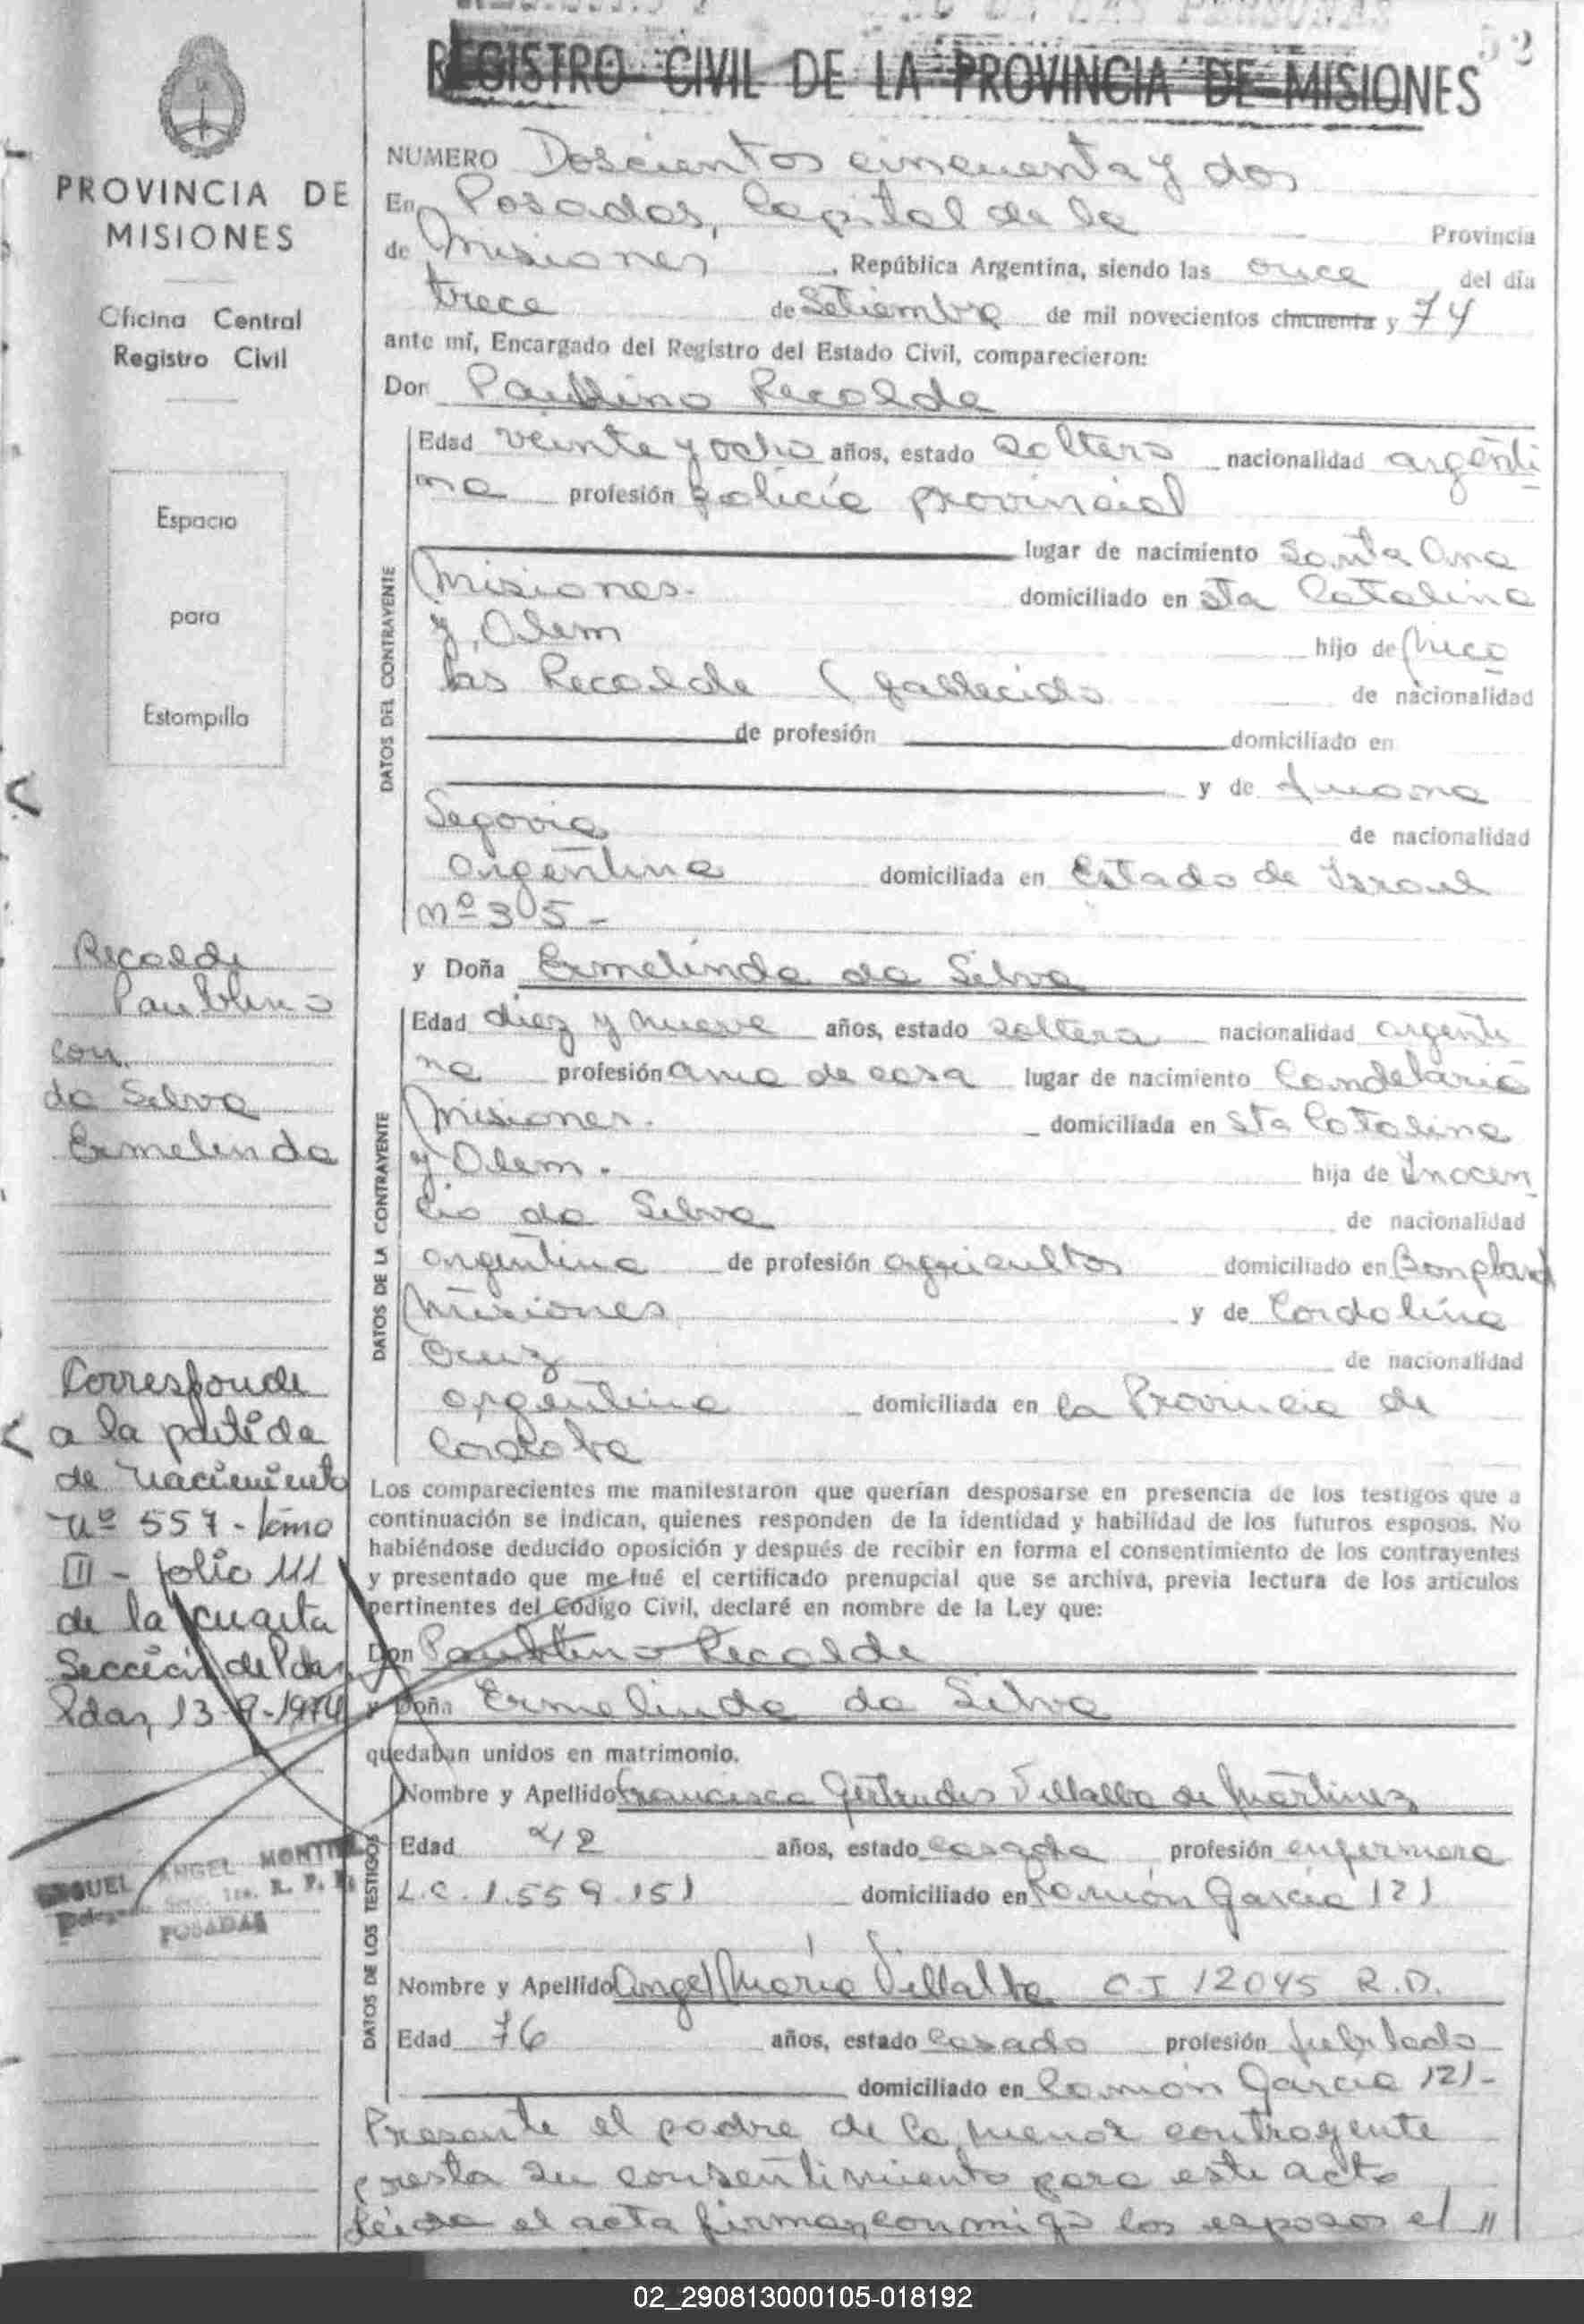 52
REGISTRO CIVIL DE LA PROVINCIA DE MISIONES
PROVINCIA DE
MISIONES
Oficina Central
Registro Civil
Espacio
para
Estompilla
NUMERO Doscientos cincuenta y dos
En Posadas, Capital de la Provincia
de Misiones, República Argentina, siendo las once del día
trece de Setiembre de mil novecientos cincuenta y 74
ante mí, Encargado del Registro del Estado Civil, comparecieron:
Don Paublino Recalde
DATOS DEL CONTRAYENTE
Edad veinte y ocho años, estado soltero nacionalidad argenti
na profesión policía provincial
lugar de nacimiento Santa Ana
Misiones.- domiciliado en Sta Catalina
y Alem hijo de Nico
las Recalde (fallecido de nacionalidad
de profesión domiciliado en
y de Juana
Segovia de nacionalidad
argentina domiciliada en Estado de Israel
Nº 305-
y Doña Ermelinda da Silva
DATOS DE LA CONTRAYENTE
Edad diez y nueve años, estado soltera nacionalidad argenti
na profesión ama de casa lugar de nacimiento Candelaria
Misiones. domiciliada en Sta Catalina
y Alem. hija de Inocen
cio da Silva de nacionalidad
argentina de profesión agricultor domiciliado en Bonpland
Misiones y de Cordolina
Cruz de nacionalidad
argentina domiciliada en la Provincia de
Cordoba
Recalde
Paublino
con
da Silva
Ermelinda
Corresponde
a la partida
de nacimiento
Nº 557 - tomo
III - folio 111
de la cuarta
Sección de Pdas
Pdas, 13-9-1974
MIGUEL ANGEL MONTIEL
POSADAS
Los comparecientes me manifestaron que querían desposarse en presencia de los testigos que a
continuación se indican, quienes responden de la identidad y habilidad de los futuros esposos. No
habiéndose deducido oposición y después de recibir en forma el consentimiento de los contrayentes
y presentado que me fué el certificado prenupcial que se archiva, previa lectura de los artículos
pertinentes del Código Civil, declaré en nombre de la Ley que:
Don Paublino Recalde
y Doña Ermelinda da Silva
quedaban unidos en matrimonio.
DATOS DE LOS TESTIGOS
Nombre y Apellido Francisca Gertrudis Villalba de Martinez
Edad 42 años, estado casada profesión enfermera
L.C. 1.559.151 domiciliado en Ramón García 121
Nombre y Apellido Angel María Villalba C.I 12045 R.D.
Edad 76 años, estado casado profesión jubilado
domiciliado en Ramón García 121-
Presente el padre de la menor contrayente
presta su consentimiento para este acto
Leída el acta firman conmigo los esposos el "
02_290813000105-018192